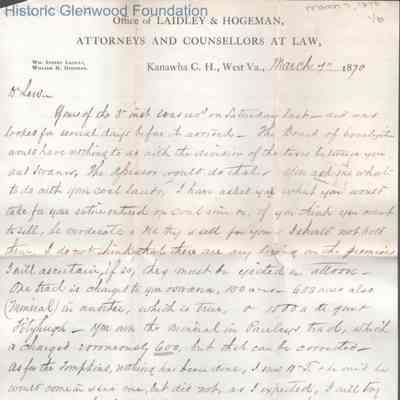 Historic Glenwood Foundation
March 7, 1870
Office of LAIDLEY & HOGEMAN,
ATTORNEYS AND COUNSELLORS AT LAW,
WM. SYDNEY LAIDLEY,
WILLIAM H. HOGEMAN.
Kanawha C. H., West Va., March 7th 1870
Dr Lewis
Yours of the 3d inst was recd on Saturday last and was
looked for several days before it arrived - The Board of
have nothing to do with the division of the taxes between you
and Swann, The Assessor would do that - You ask me what
to do with your coal lands, I have asked you what you would
take for your entire interest on coal If you think you want
to sell, be moderate & let me try & sell for you - I should not hold
I do not think that there are any living on the premises
I will ascertain, if so, they must be ejected
One tract is charged to you 608 acres also
(Mineral) in another, which is true, 1000 a
- You own the mineral in tract, which
is charged erroneously 600, but that can be corrected -
As for the Tompkins, nothing has been done, I saw Mr T & he said he
would come in & see me, but did not, as I expected, I will try